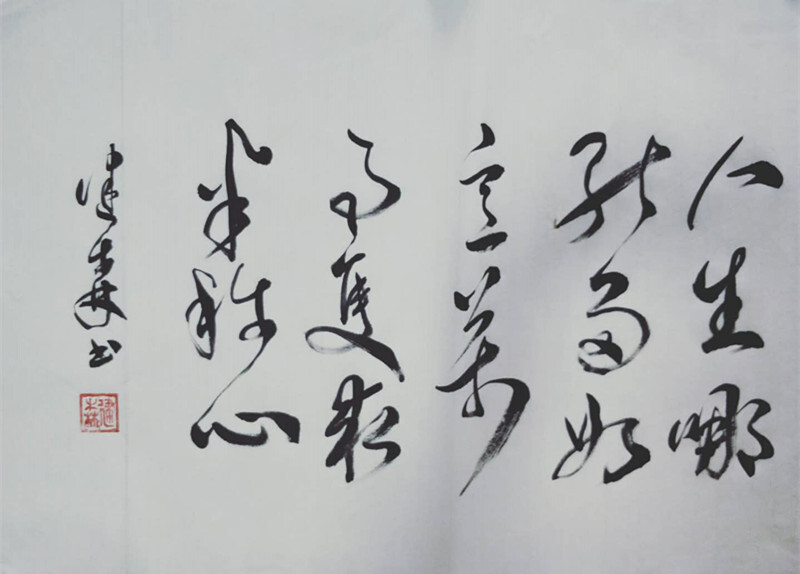 人生哪
能多如
意萬
事隻求
半称心
建森书